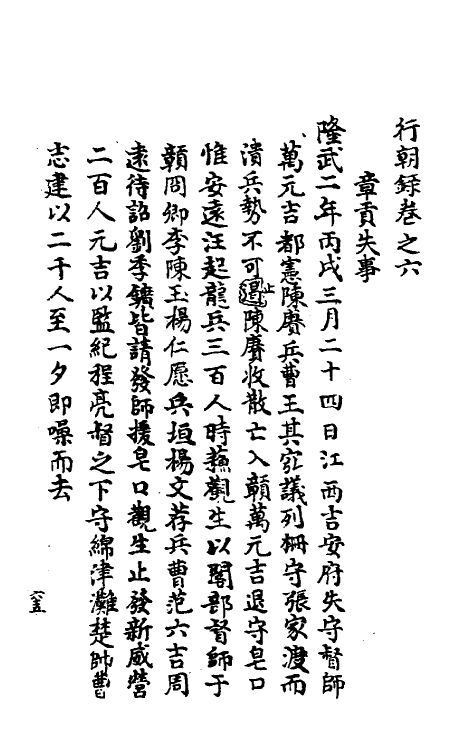 行朝録卷之六
章貢失事
隆武二年丙戌三月二十四日江西吉安府失守督師
萬元吉都憲陳賡兵曹王其宖議列柵守張家渡而
潰兵勢不可遏止陳賡收散亡入贑萬元吉退守皂口
惟安遠汪起龍兵三百人時蘓觀生以閣部督師于
贑同卿李陳玉楊仁愿兵垣楊文荐兵曹范六吉周
遠待詔劉季鑛皆請發師援皂口觀生止發新威營
二百人元吉以監紀程亮督之下守綿津灘楚帥曹
志建以二千人至一夕即噪而去
六五